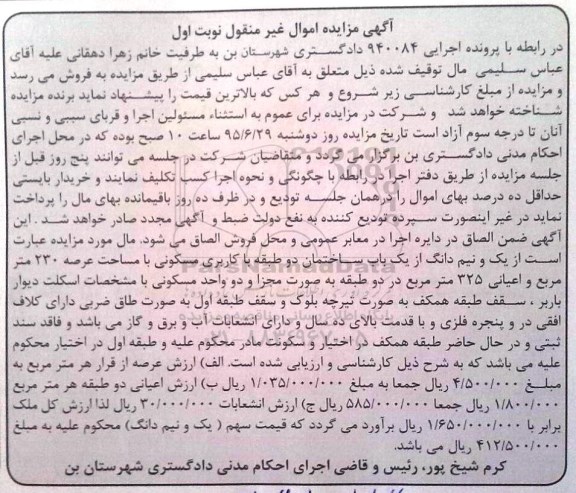 آگهی مزایده اموال غیر منقول نوبت اول
در رابطه با پرونده اجرایی ۹۴۰۰۸۴ دادگستری شهرستان بن به طرفیت خانم زهرا دهقانی علیه آقای
عباس سلیمی مال توقیف شده ذیل متعلق به آقای عباس سلیمی از طریق مزایده به فروش می رسد
و مزایده از مبلغ کارشناسی زیر شروع و هر کس که بالاترین قیمت را پیشنهاد نماید برنده مزایده
شناخته خواهد شد و شرکت در مزایده برای عموم به استثناء مسئولین اجرا و قربای سببی و نسبی
آنان تا درجه سوم آزاد است تاریخ مزایده روز دوشنبه ۹۵/۶/۲۹ ساعت ۱۰ صبح بوده که در محل اجرای
احکام مدنی دادگستری بن برگزار می گردد و متقاضیان شرکت در جلسه می توانند پنج روز قبل از
جلسه مزایده از طریق دفتر اجرا در رابطه با چگونگی و نحوه اجرا کسب تکلیف نمایند و خریدار بایستی
حداقل ده درصد بهای اموال را درهمان جلسه تودیع و در ظرف ده روز باقیمانده بهای مال را پرداخت
نماید در غیر اینصورت سپرده تودیع کننده به نفع دولت ضبط و آگهی مجدد صادر خواهد شد . این
آگهی ضمن الصاق در دایره اجرا در معابر عمومی و محل فروش الصاق می شود. مال مورد مزایده عبارت
است از یک و نیم دانگ از یک باب ساختمان دو طبقه با کاربری مسکونی با مساحت عرصه ۲۳۰ متر
مربع و اعیانی ۳۲۵ متر مربع در دو طبقه به صورت مجزا و دو واحد مسکونی با مشخصات اسکلت دیوار
باربر ، سقف طبقه همکف به صورت تیرچه بلوک و سقف طبقه اول به صورت طاق ضربی دارای کلاف
افقی در و پنجره فلزی و با قدمت بالای ده سال و دارای انشعابات آب و برق و گاز می باشد و فاقد سند
ثبتی و در حال حاضر طبقه همکف در اختیار و سکونت مادر محکوم علیه و طبقه اول در اختیار محکوم
علیه می باشد که به شرح ذیل کارشناسی و ارزیابی شده است. الف) ارزش عرصه از قرار هر متر مربع به
مبلغ ۴/۵۰۰/۰۰۰ ریال جمعا به مبلغ ۱/۰۳۵/۰۰۰/۰۰۰ ریال ب) ارزش اعیانی دو طبقه هر متر مربع
۱/۸۰۰/۰۰۰ ریال جمعا ۵۸۵/۰۰۰/۰۰۰ ریال ج) ارزش انشعابات ۳۰/۰۰۰/۰۰۰ ریال لذا ارزش کل ملک
برابر با ۱/۶۵۰/۰۰۰/۰۰۰ ریال برآورد می گردد که قیمت سهم ( یک و نیم دانگ) محکوم علیه به مبلغ
۴۱۲/۵۰۰/۰۰۰ ریال می باشد.
کرم شیخ پور، رئیس و قاضی اجرای احکام مدنی دادگستری شهرستان بن